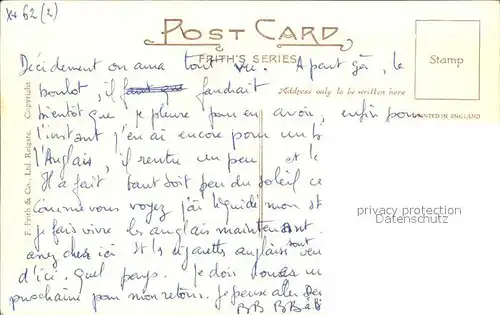 X+ 62 (2)
POST CARD
FRITH'S SERIES.
Stamp
Décidement on aura tout vu. A part ça, le
boulot, il faudrait
Address only to be written here
bientôt que je pleure pour en avoir, enfin pour
PRINTED IN ENGLAND
l'instant j'en ai encore pour un
l'Anglais, il rentre un peu et le
Il a fait tant soit peu du soleil ce
comme vous voyez j'ai liquidé mon st
je fais vivre les anglais maintenant.
chez ici St les cigarettes anglaises sont
d'ici. Quel pays. Je dois
prochaine pour mon retour. Je pense
F. Frith & Co., Ltd. Reigate. Copyright
privacy protection
Datenschutz